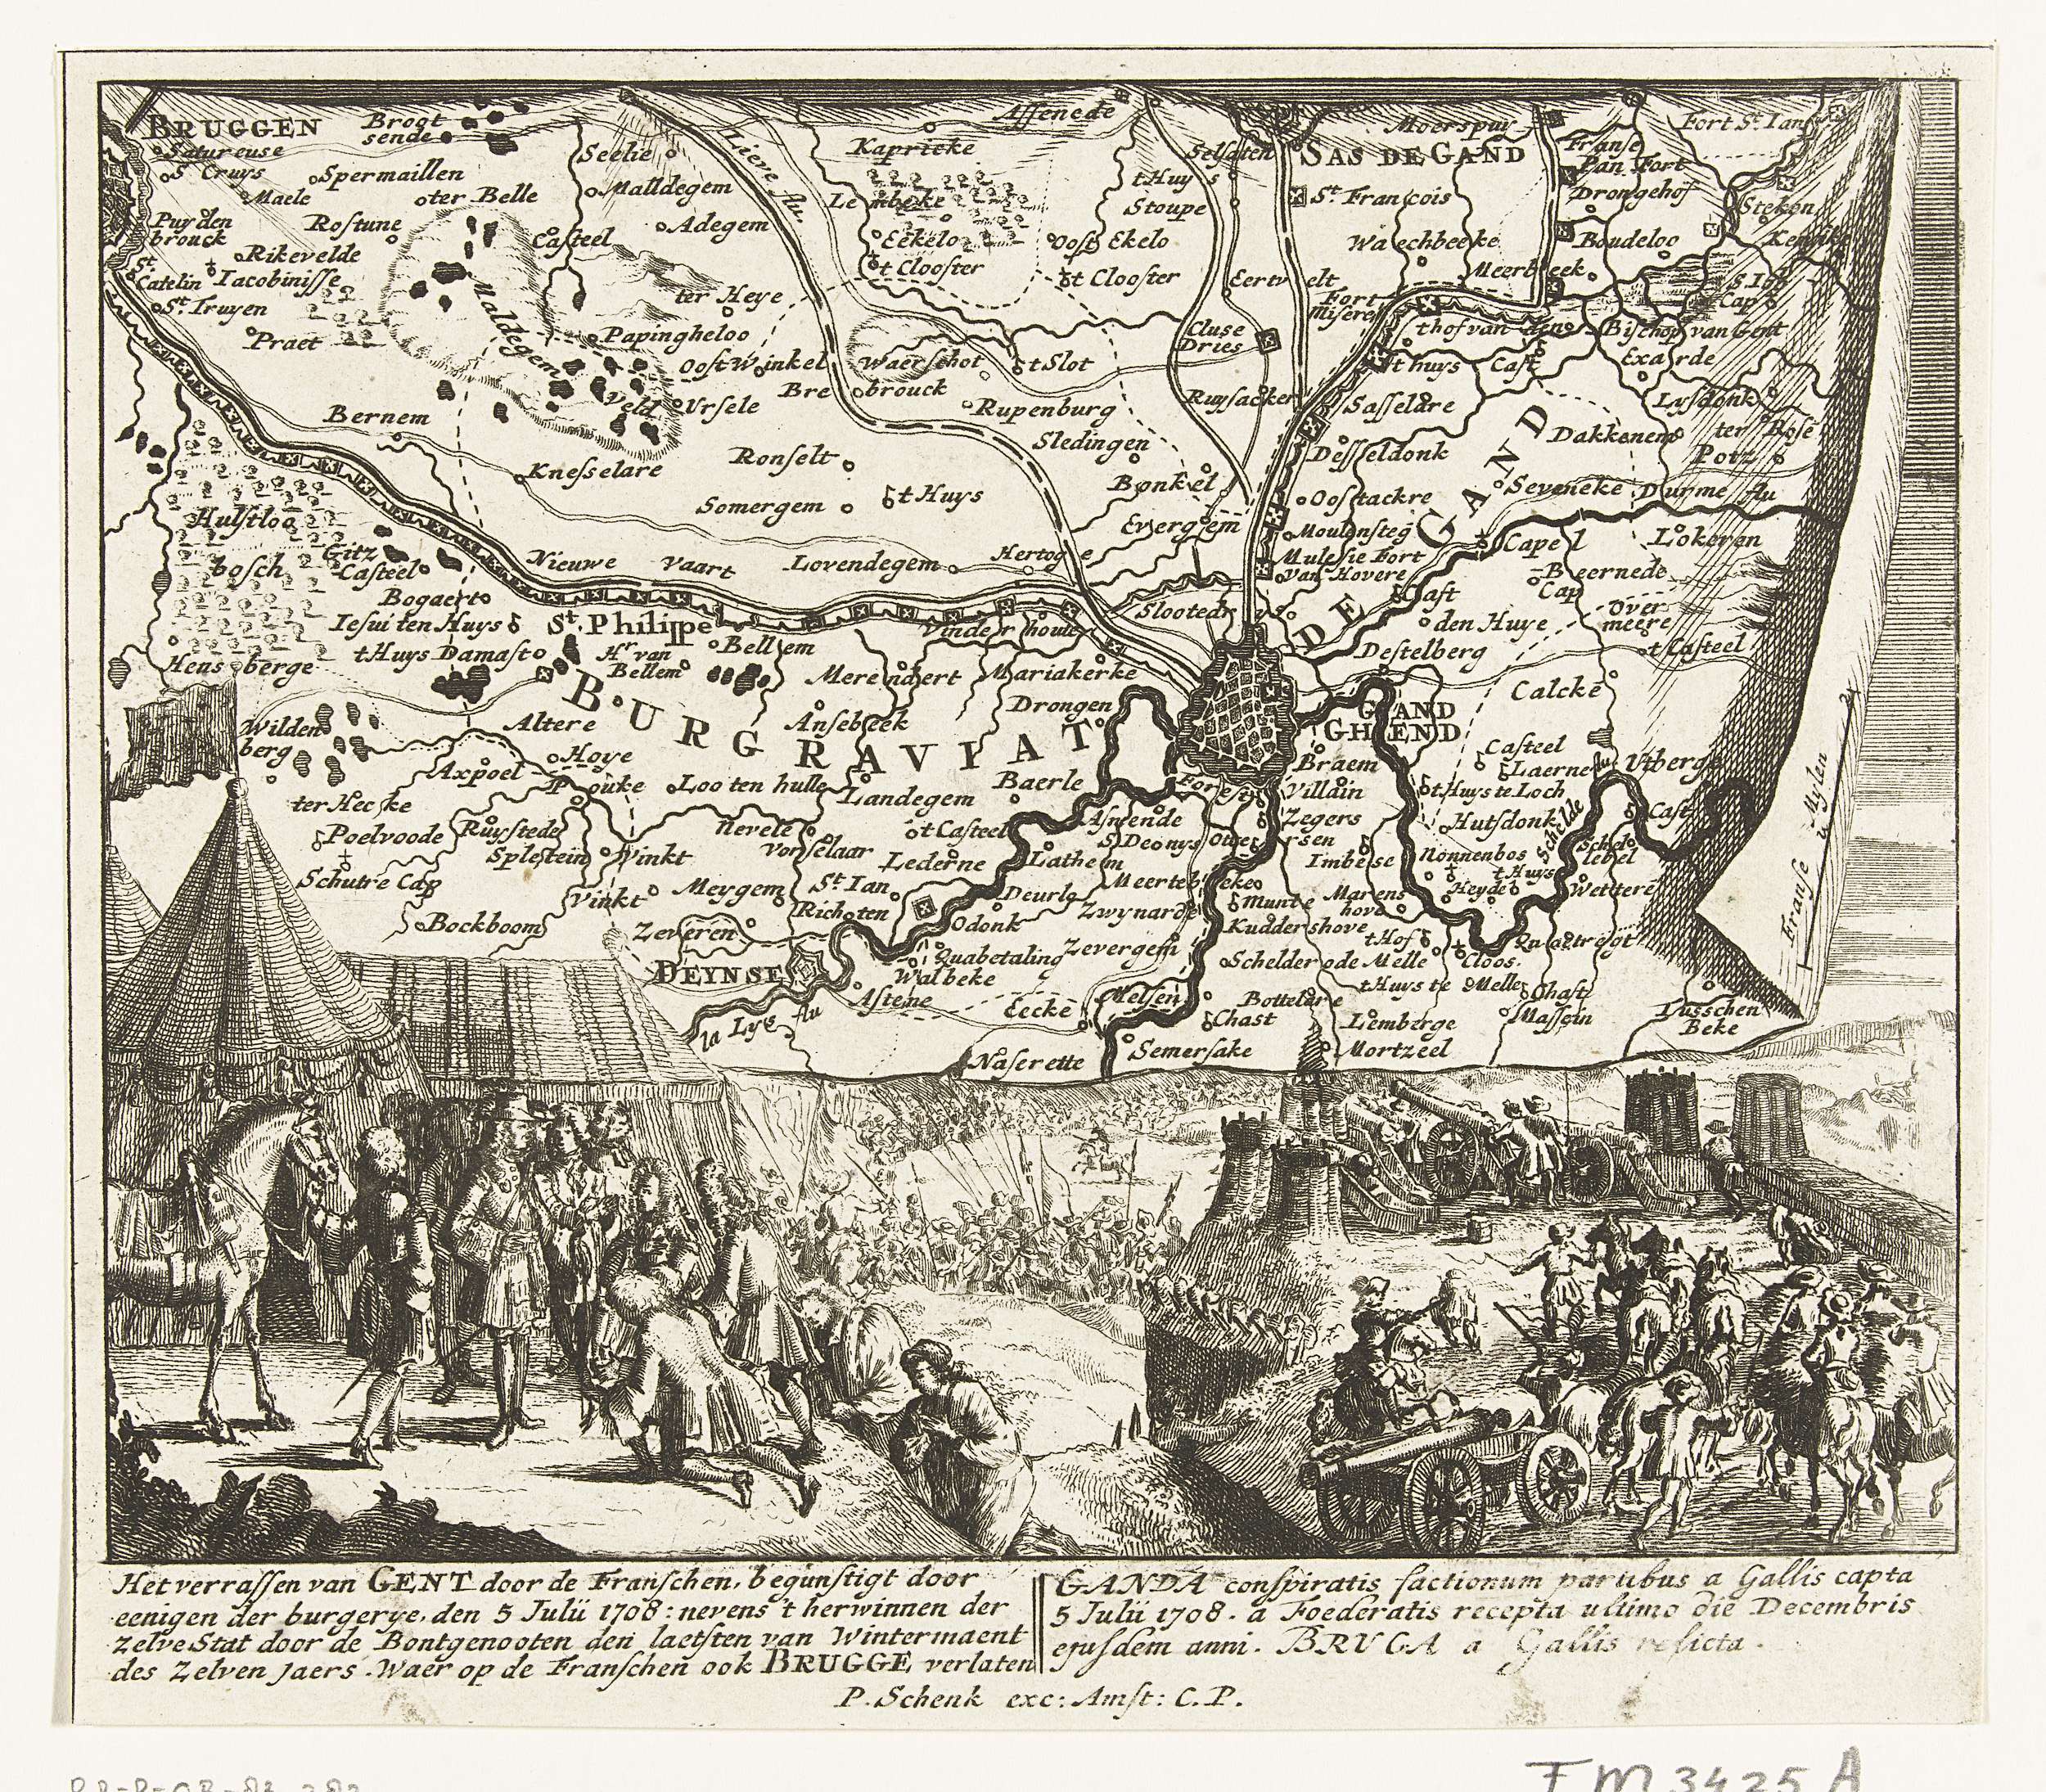 BRUGGEN
Satureuse
St Cruys
Maele
Spermaillen
ter Belle
Seelie
Malldegem
Adegem
Casteel
Rostune
Puyden
brouck
Rikevelde
Iacobinisse
St
Catelin
St. Truyen
Praet
Maldegem
Veld
Lieve flu
Kapricke
Assenede
Lembeke
Eekelo
t Clooster
Oost Ekelo
t Clooster
ter Heye
Papingheloo
Oost Winkel
Waerschot
t Slot
Ursele
Bre brouck
Rupenburg
Sledingen
Bernem
Knesselare
Ronselt
Somergem
t Huys
Bonkel
Evergem
t Huys
Stoupe
SAS DE GAND
Moerspuy
St. François
Waechbeeke
Eertvelt
Cluse
Dries
Ruysacker
Fort St. Ian
Franse
Pan Fort
Drongehof
Steken
Boudeloo
Meerbeek
Fort
Miseren
thof van den Bischop van Gent
Exaerde
t huys
Cast
Sasselare
Lysdonk
Dakkenem
ter
Potz
Desseldonk
Oostackre
Seveneke
Durme flu
Moulensteg
Mulesie Fort
van Hovere
Capel
Lokeren
Beernede
Cap
Over
meere
den Huye
Destelberg
t Casteel
Calcke
Hulstloo
bosch
Gitz
Casteel
Bogaert
Iesuiten Huys
t Huys Damast
St. Philippe
Hr. van
Bellem
Bellem
Nieuwe Vaart
Lovendegem
Hertoge
Vinderhoute
Merendaert
Mariakerke
Drongen
Hensberge
Wilden
berg
Altere
Ansebeek
BURGRAVIAT DE GAND
GAND
GHEND
Axpoel
Hoye
Pouke
Loo ten hulle
Landegem
Baerle
Braem
Villain
Casteel
Laerne
Utberge
ter Hecke
Poelvoode
Ruystede
Splestein
Vinkt
Nevele
Vorselaar
t Casteel
Lederne
Lathem
S Deonys
Zegers
t Huys te Loch
Hutsdonk
Schelde
Cast
Imbese
Nonnenbos
t Huys
Heyde
Wettere
Schutre Cap
Bockboom
Vinkt
Meygem
St. Ian
Richoten
Deurle
Zwynarde
Munte
Marens
hove
Zeveren
Odonk
Kuddershove
DEYNSE
Quabetaling
Walbeke
Zevergem
Schelderode
t Hof
Melle
Cloos.
Quaetregt
Astene
Eecke
Melsen
Bottelare
t Huys te Melle
Chast
Massein
la Lys flu
Chast
Lemberge
Mortzeel
Tusschen
Beke
Naserette
Semersake
Franse Mylen
Het verrassen van GENT door de Franschen, begunstigt door
eenigen der burgerye, den 5 Julii 1708: nevens 't herwinnen der
Zelve Stat door de Bontgenooten den laetsten van Wintermaent
des Zelven jaers. Waer op de Franschen ook BRUGGE verlaten
GANDA conspiratis factionum partibus a Gallis capta
5 Julii 1708. a Foederatis recepta ultimo die Decembris
ejusdem anni. BRUGA a Gallis relicta.
P. Schenk exc: Amst: C. P.
FM 3425 A